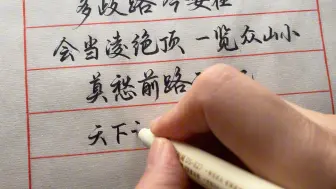 多歧路 今安在
会当凌绝顶 一览众山小
莫愁前路
天下